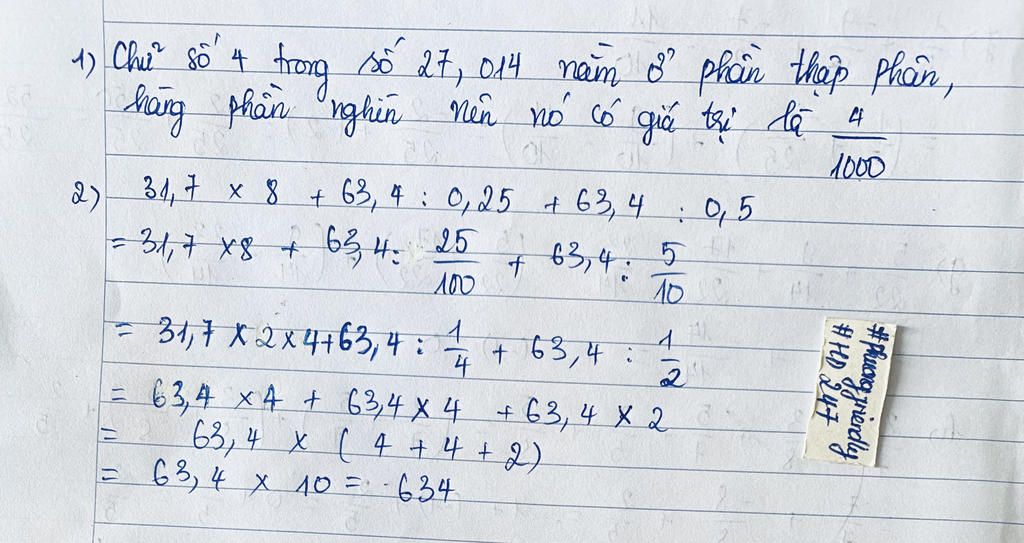 1) Chữ số 4 trong số 27,014 nằm ở phần thập phân,
hàng phần nghìn nên nó có giá trị là 4/1000
2) 31,7 x 8 + 63,4 : 0,25 + 63,4 : 0,5
= 31,7 x 8 + 63,4 : 25/100 + 63,4 : 5/10
= 31,7 x 2 x 4 + 63,4 : 1/4 + 63,4 : 1/2
= 63,4 x 4 + 63,4 x 4 + 63,4 x 2
= 63,4 x (4 + 4 + 2)
= 63,4 x 10 = 634
#phuongfriendly
#HD 247